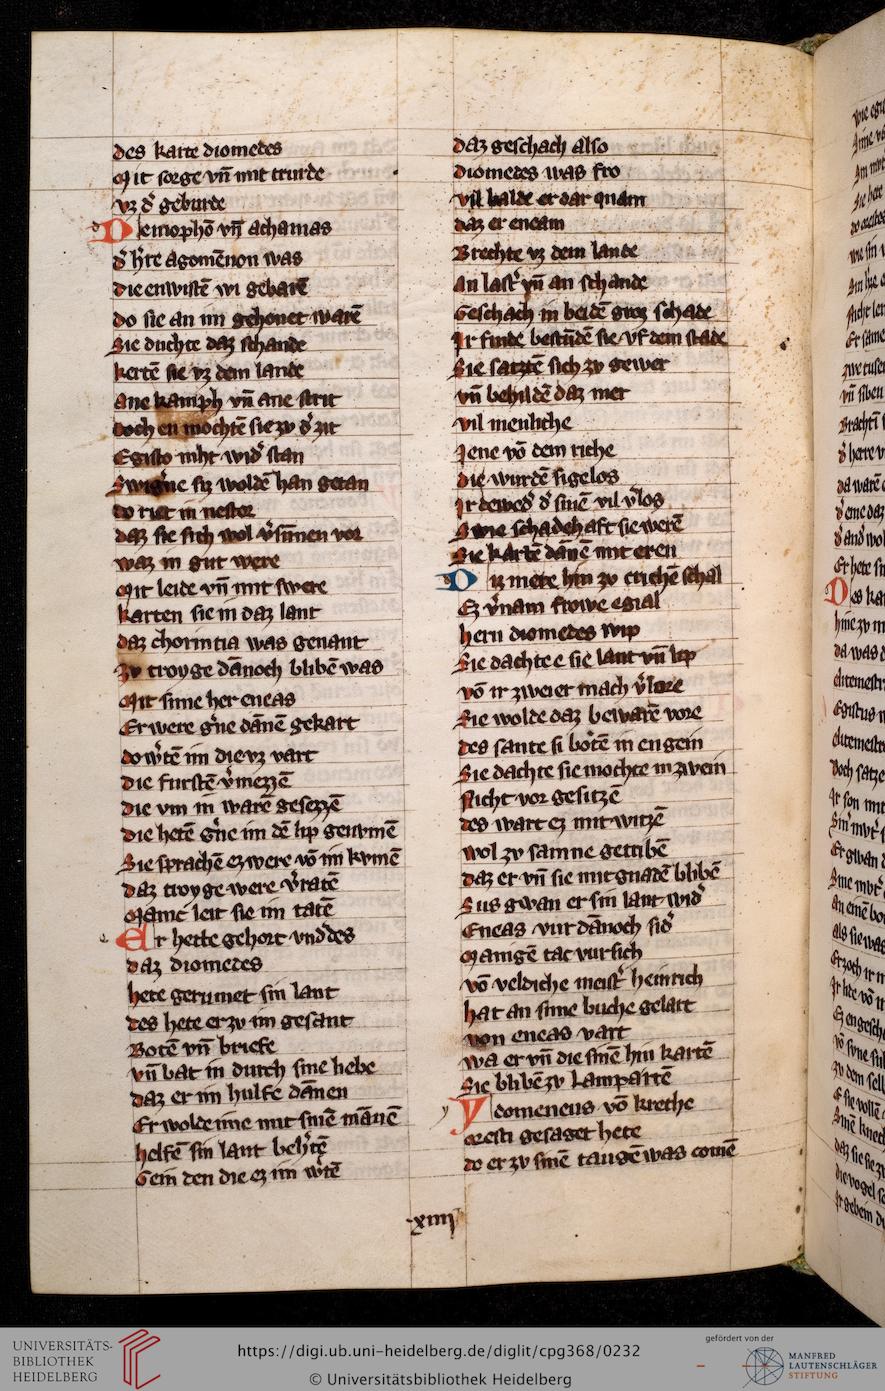 des karte diomedes
Mit sorge vn̄ mit trurde
vz d' geburde
Demophō vn̄ achamas
d' h're agomēnon was
die enwistē wi gebarē
do sie an im gehouet warē
Sie duchte daz schande
kertē sie vz dem lande
ane kamph vn̄ ane strit
doch en mochtē sie zv d' zit
Egisto niht wid' stan
Swigēne siz woldē han getan
do riet in nestor
daz sie sich wol v'sinnen vor
waz in gut were
Mit leide vn̄ mit swere
karten sie in daz lant
daz chorintia was genant
Zv troyge dānoch blibē was
Mit sime her eneas
Er were g'ne dānē gekart
do w'tē im die vz vart
die furstē v'mezzē
die vm in warē gesezzē
die hetē g'ne im dē lip genvmē
Sie sprachē ez were vō im kvmē
daz troyge were v'ratē
Manic leit sie im tatē
Er hette gehort vnd' des
daz diomedes
hete gerumet sin lant
des hete er zv im gesant
Botē vn̄ briefe
vn̄ bat in durch sine liebe
daz er im hulfe dānen
Er wolde ime mit sinē mānē
helfē sin lant beh'tē
Gein den die ez im w'tē
daz geschach also
diomedes was fro
vil balde er dar quam
daz er eneam
Brechte vz dem lande
an last' vn̄ an schande
Geschach in beidē groz schade
Ir finde bestūdē sie vf dem stade
Sie satztē sich zv gewer
vn̄ behildē daz mer
vil menliche
Jene vō dem riche
die wurdē sigelos
Ir dewed' d' sinē vil v'los
Swie schadehaft sie werē
Sie kartē dānē mit eren
Diz mere hin zv crichē schal
Ez v'nam frowe egial
hern diomedes wip
Sie dachte e sie lant vn̄ lip
vō ir zweier mach v'lore
Sie wolde daz bewarē vore
des sante si botē in engein
Sie dachte sie mochte in zwein
Nicht vor gesitzē
des wart ez mit witzē
wol zv samne getribē
daz er vn̄ sie mit gnadē blibē
Sus gwan er sin lant wid'
Eneas vur dānoch sid'
Manigē tac vur sich
vō veldiche meist' heinrich
hat an sime buche gelart
von eneas vart
wa er vn̄ die sinē hin kartē
Sie blibē zv Lampartē
Ydomeneus vō krethe
oresti gesaget hete
do er zv sinē taugē was comē
xiiij
UNIVERSITÄTS-
BIBLIOTHEK
HEIDELBERG
https://digi.ub.uni-heidelberg.de/diglit/cpg368/0232
© Universitätsbibliothek Heidelberg
gefördert von der
MANFRED
LAUTENSCHLÄGER
STIFTUNG